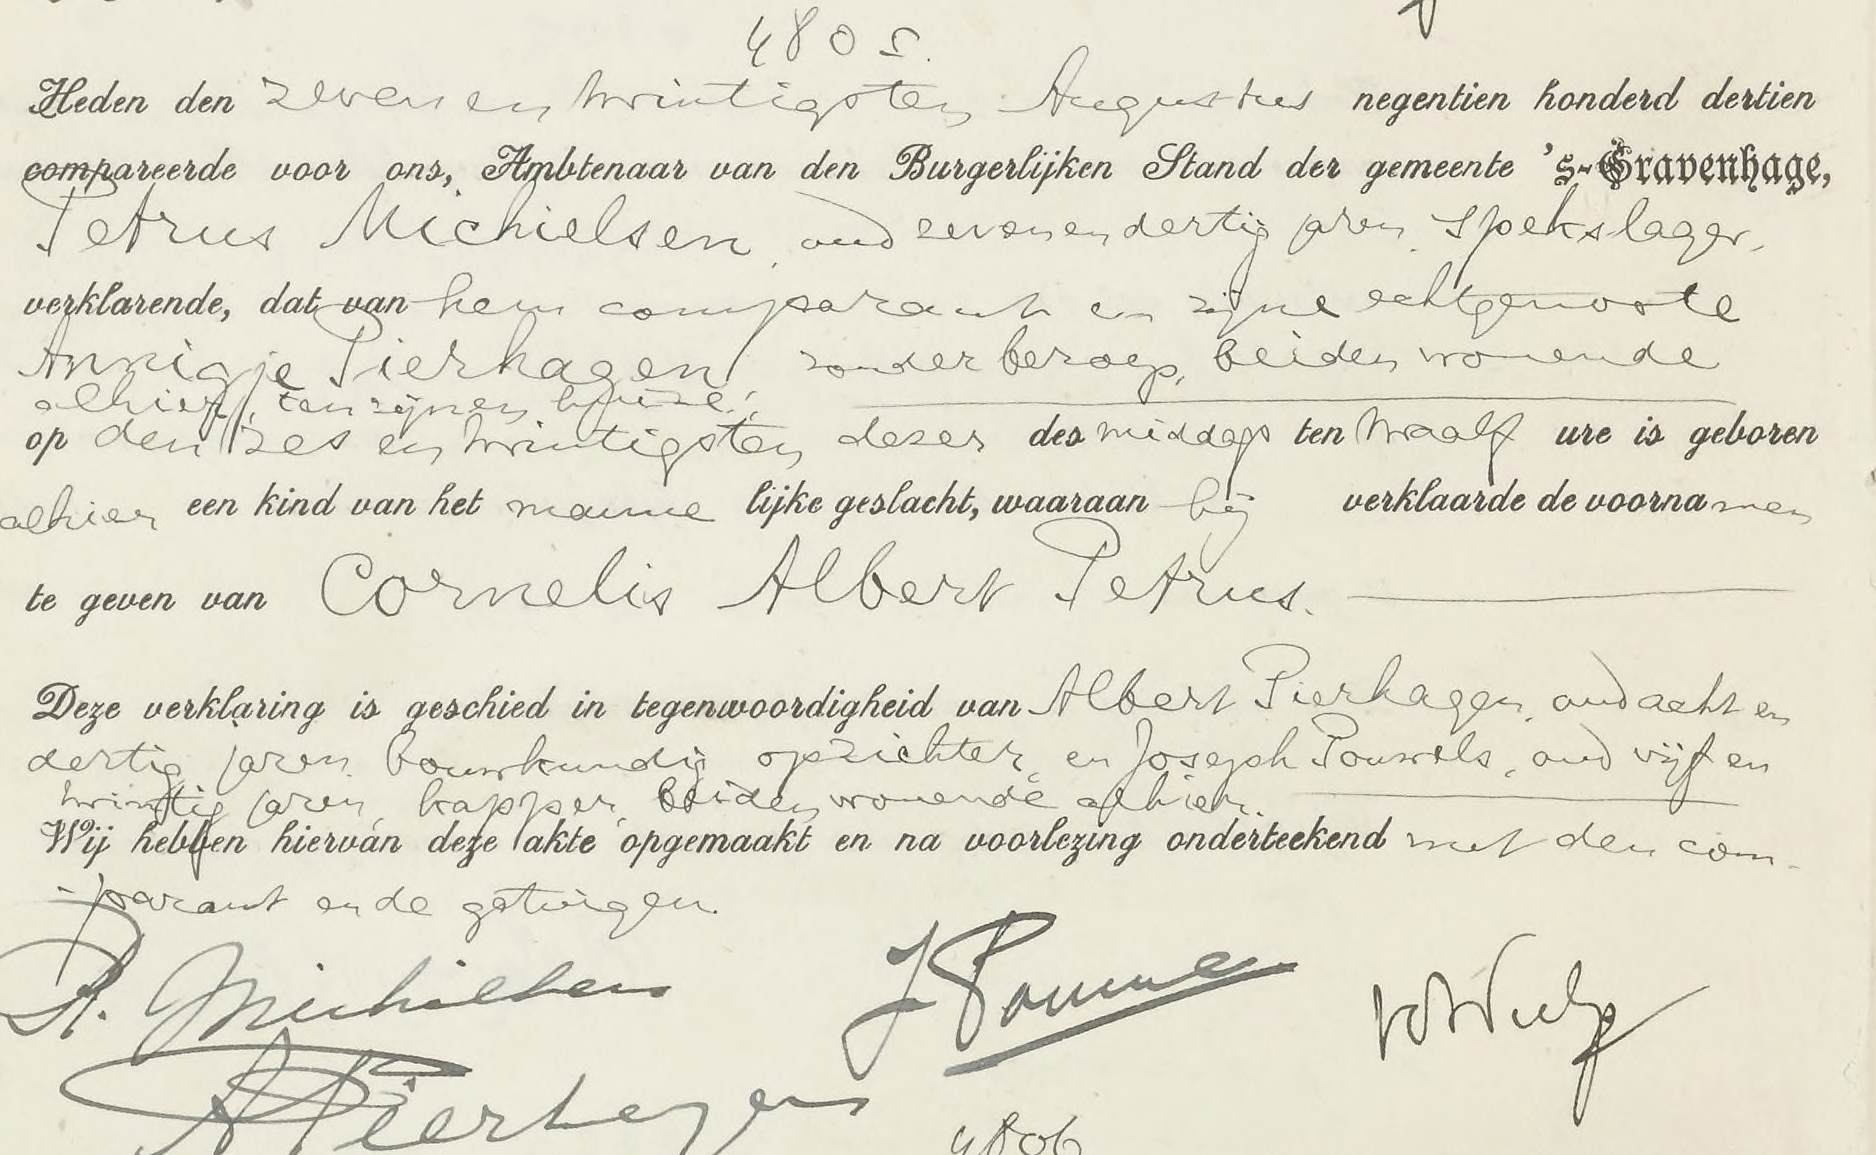 4805.
Heden den zeven en twintigsten Augustus negentien honderd dertien
compareerde voor ons, Ambtenaar van den Burgerlijken Stand der gemeente 's-Gravenhage,
Petrus Michielsen, oud zevenendertig jaren, spekslager,
verklarende, dat van hem comparant en zijne echtgenoote
Annigje Pierhagen, zonder beroep, beiden wonende
alhier, ten zijnen huize,
op den zes en twintigsten dezer des middags ten twaalf ure is geboren
alhier een kind van het manne lijke geslacht, waaraan hij verklaarde de voorna men
te geven van Cornelis Albert Petrus.
Deze verklaring is geschied in tegenwoordigheid van Albert Pierhagen, oud acht en
dertig jaren, bouwkundig opzichter, en Joseph Pouwels, oud vijf en
twintig jaren, kapper, beiden wonende alhier.
Wij hebben hiervan deze akte opgemaakt en na voorlezing onderteekend met den com-
-parant en de getuigen.
P. Michielsen J Pouwe
A Pierhagen
4806